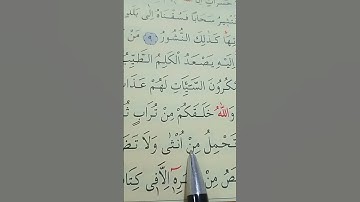 فَتُثِيرُ سَحَابًا فَسُقْنَاهُ اِلٰى بَلَدٍ
كَذٰلِكَ النُّشُورُ ﴿٩﴾ مَنْ
اِلَيْهِ يَصْعَدُ الْكَلِمُ الطَّيِّبُ
يَمْكُرُونَ السَّيِّـَٔاتِ لَهُمْ عَذَابٌ
وَاللّٰهُ خَلَقَكُمْ مِنْ تُرَابٍ ثُمَّ
تَحْمِلُ مِنْ اُنْثٰى وَلَا تَضَعُ
مِنْ عُمُرِهٖٓ اِلَّا فٖى كِتَابٍ